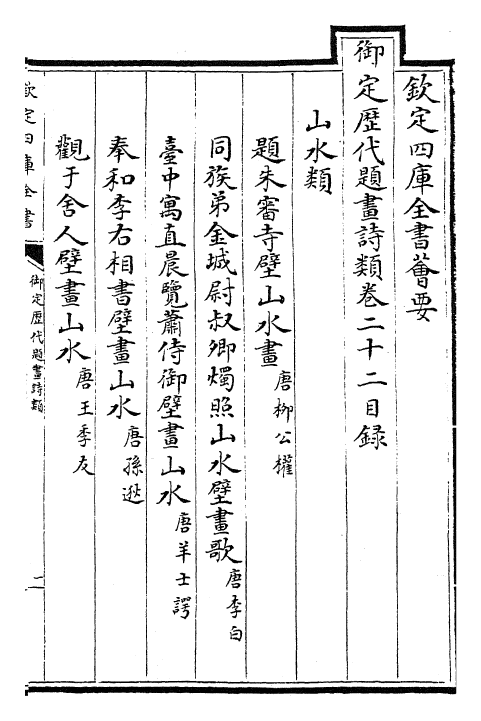 欽定四庫全書薈要
御定歴代題畫詩類卷二十二目録
山水類
題朱審寺壁山水畫 唐柳公權
同族弟金城尉叔卿燭照山水壁畫歌 唐李白
臺中寓直晨覽蕭侍御壁畫山水 唐羊士諤
奉和李右相書壁畫山水 唐孫逖
觀于舍人壁畫山水 唐王季友
欽定四庫全書
御定歴代題畫詩類